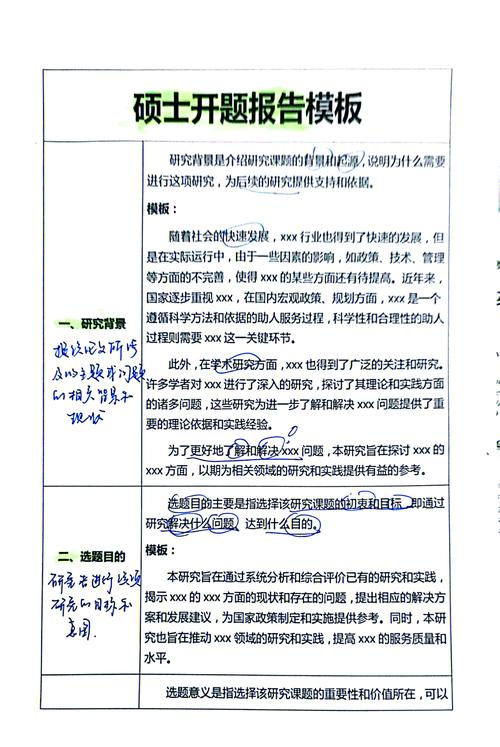 硕士开题报告模板
研究背景是介绍研究课题的背景和起源，说明为什么需要
进行这项研究，为后续的研究提供支持和依据。
模板：
随着社会的快速发展，xxx 行业也得到了快速的发展，但
是在实际运行中，由于一些因素的影响，如政策、技术、管理
等方面的不完善，使得 xxx 的某些方面还有待提高。近年来，
国家逐步重视 xxx，在国内宏观政策、规划方面，xxx 是一个
遵循科学方法和依据的助人服务过程，科学性和合理性的助人
过程则需要 xxx 这一关键环节。
此外，在学术研究方面，xxx 也得到了广泛的关注和研究。
许多学者对 xxx 进行了深入的研究，探讨了其理论和实践方面
的诸多问题，这些研究为进一步了解和解决 xxx 问题提供了重
要的理论依据和实践经验。
为了更好地了解和解决 xxx 问题，本研究旨在探讨 xxx 的
xxx 方面，以期为相关领域的研究和实践提供有益的参考。
一、研究背景
报给论文所涉
及的主题或问题
的相关背景和
现状
选题目的主要是指选择该研究课题的初衷和目标，即通过
研究解决什么问题，达到什么目的。
模板：
本研究旨在通过系统分析和综合评价已有的研究和实践，
揭示 xxx 的 xxx 方面的现状和存在的问题，提出相应的解决方
案和发展建议，为国家政策制定和实施提供参考。同时，本研
究也旨在推动 xxx 领域的研究和实践，提高 xxx 的服务质量和
水平。
二、选题目的
研究者进行该项
研究的目标和
意图.
选题意义是指选择该研究课题的重要性和价值所在，可以